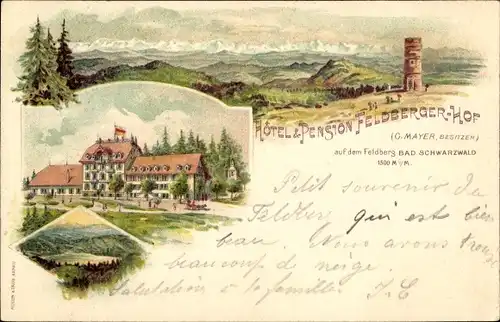 HÔTEL & PENSION FELDBERGER-HOF
(C. MAYER, BESITZER)
auf dem Feldberg BAD. SCHWARZWALD
1500 M./M.
Petit souvenir du
Feldberg qui est bien
beau. Nous avons trouvé
beaucoup de neige.
Salutation à la famille J. C